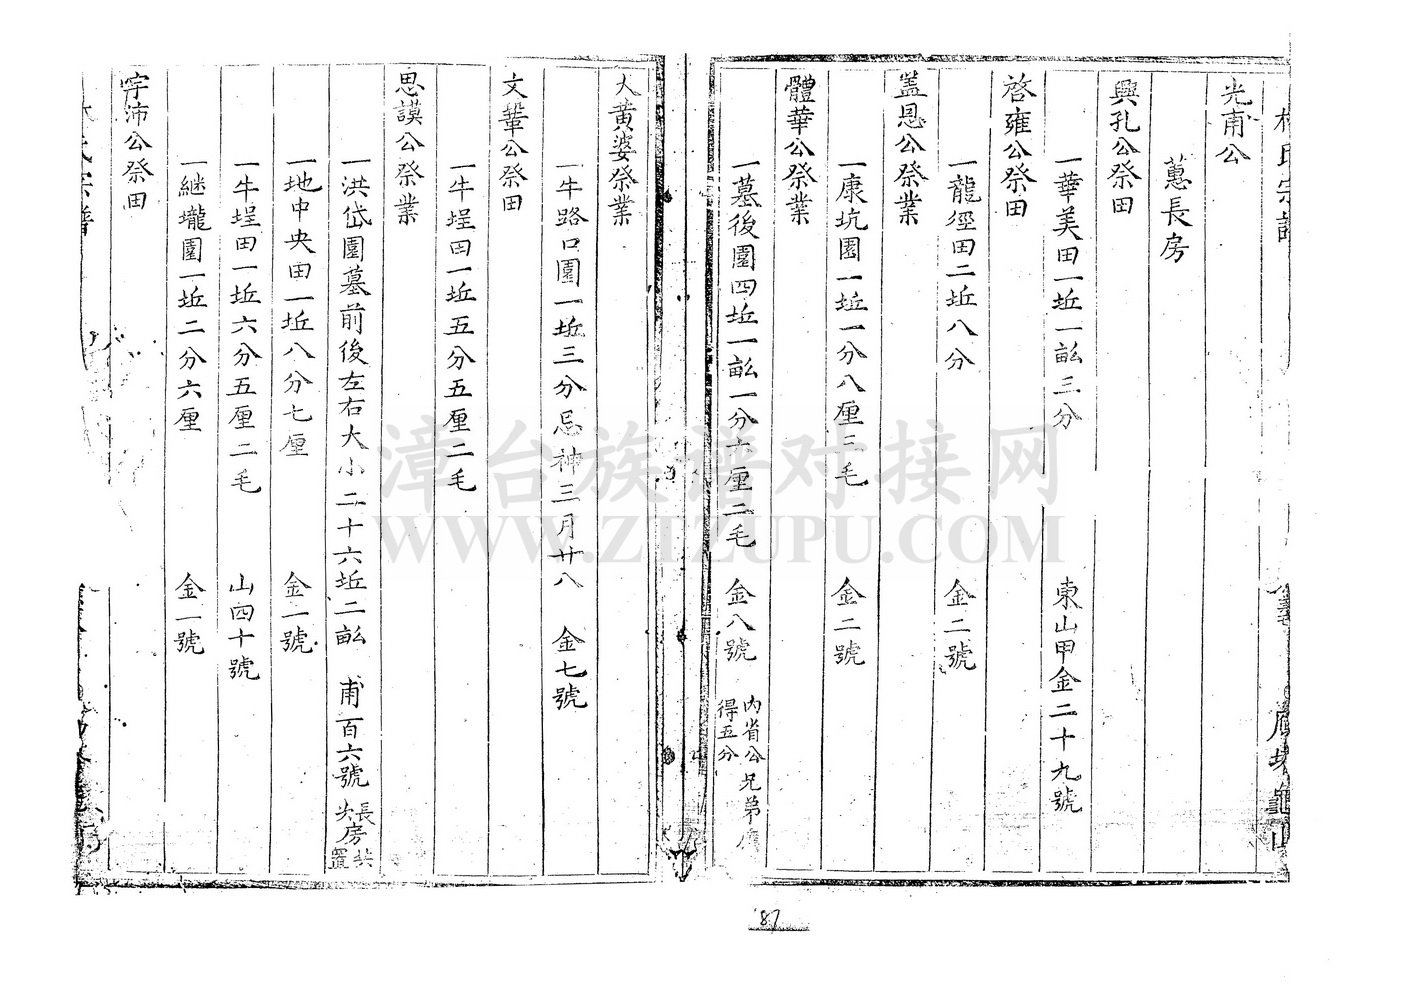 光甫公
蕙長房
興孔公祭田
一華美田一坵一畝三分 東山甲金二十九號
啓雍公祭田
一龍徑田二坵八分 金二號
盖恩公祭業
一康坑園一坵一分八厘三毛 金二號
體華公祭業
一墓後園四坵一畝一分六厘二毛 金八號 內省公兄弟 得五分
大黃婆祭業
一牛路口園一坵三分忌神三月廿八 金七號
文鞏公祭田
一牛埕田一坵五分五厘二毛
思謨公祭業
一洪岱園墓前後左右大小二十六坵二畝 甫百六號 長房共置
一地中央田一坵八分七厘 金一號
一牛埕田一坵六分五厘二毛 山四十號
一継壠園一坵二分六厘 金一號
宇沛公祭田
漳台族谱对接网
WWW.ZTZUPU.COM
87